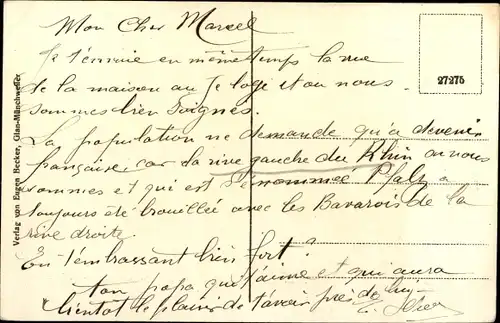 Mon Cher Marcel
Je t'envoie en même temps la vue
de la maison ou je loge et ou nous
sommes bien soignés.
La population ne demande qu'a devenir
française, car la rive gauche du Rhin ou nous
sommes et qui est dénommée Pfalz a
toujours été brouillée avec les Bavarois de la
rive droite.
En t'embrassant bien fort.
ton papa qui t'aime et qui aura
bientot le plaisir de t'avoir près de lui
27275
Verlag von Eugen Becker, Glan-Münchweiler